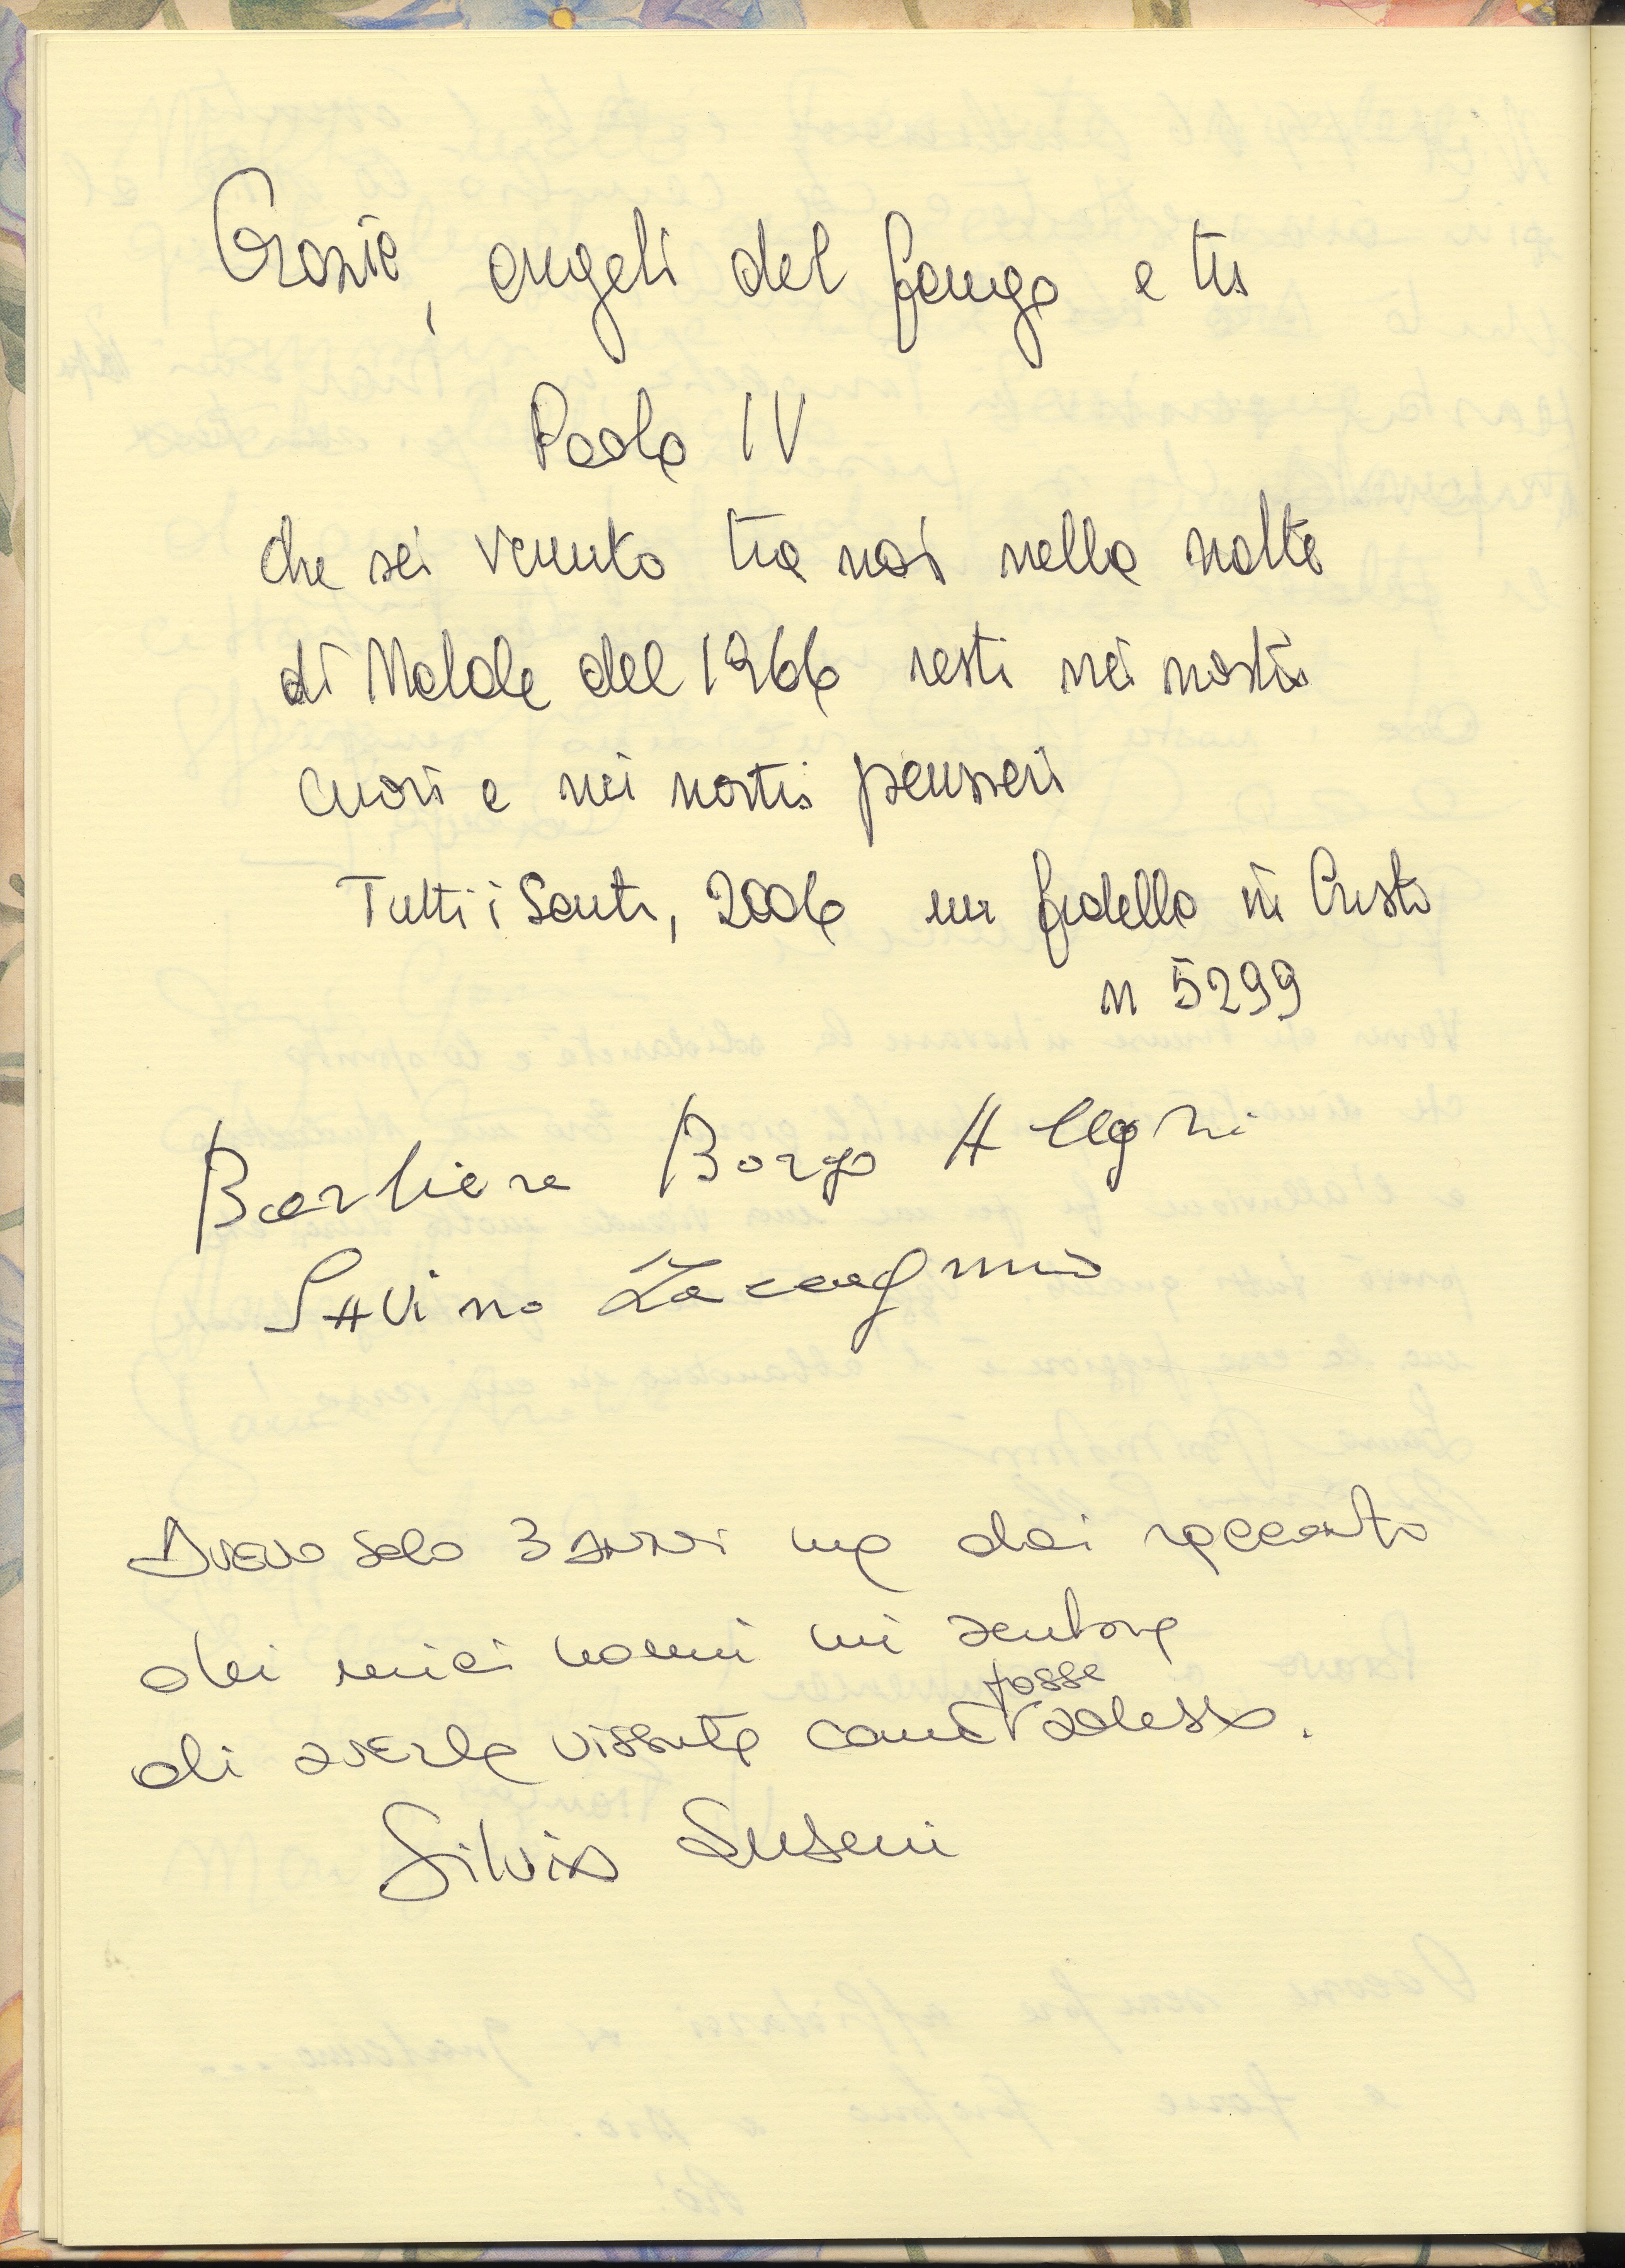 Grazie, angeli del fango e tu
Paolo IV
che sei venuto tra noi nella notte
di Natale del 1966 resti nei nostri
cuori e nei nostri pensieri
Tutti i Santi, 2006 un fratello in Cristo
n 5299
Barbiere Borgo Allegri
Savino Zaccagnino
Avevo solo 3 anni ma dai racconti
dei miei nonni mi sembra
di averla vissuta come fosse adesso.
Silvia Suseni